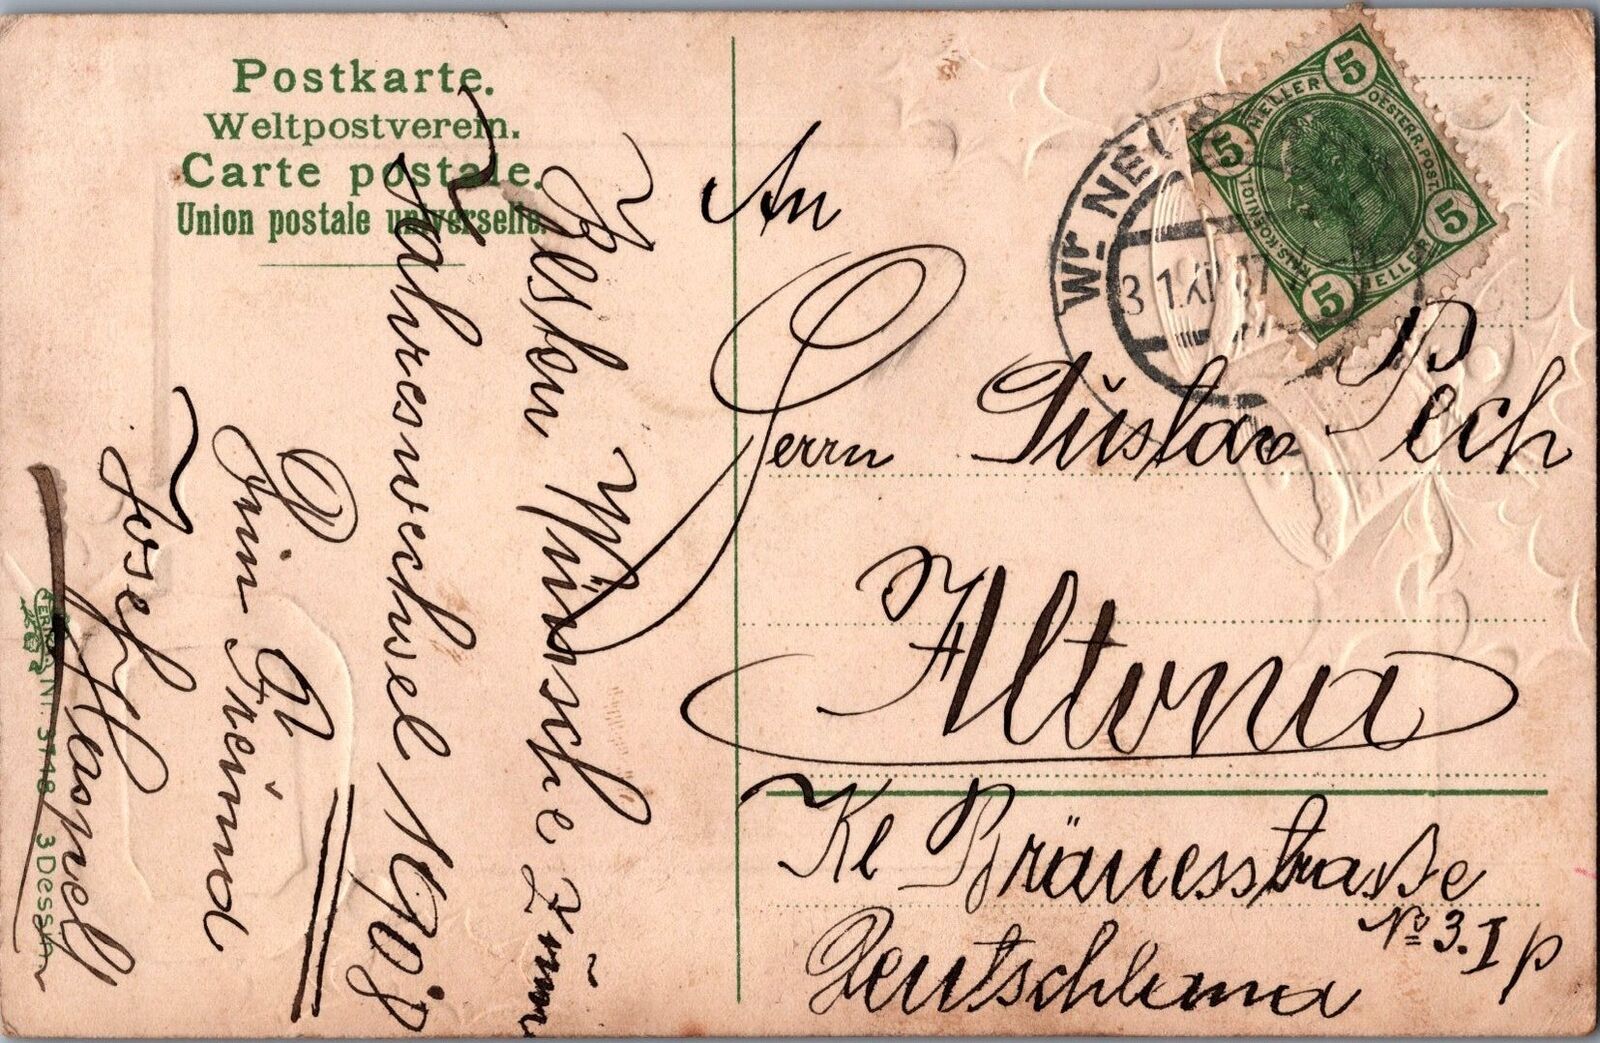 Postkarte.
Weltpostverein.
Carte postale.
Union postale universelle.
Besten Wünsche zum
Jahreswechsel 1908
Dein
Freund
Josef Haspel
Nr. 3748 3 Dessin
An
Herrn Gustav Pech
Altona
Kl Bräuesstraße
No 3. I p
Deutschland
Wr. NEUS
31.XII.07
5 HELLER 5
OESTERR. POST.
5 HELLER 5
KAIS. KÖNIGL.